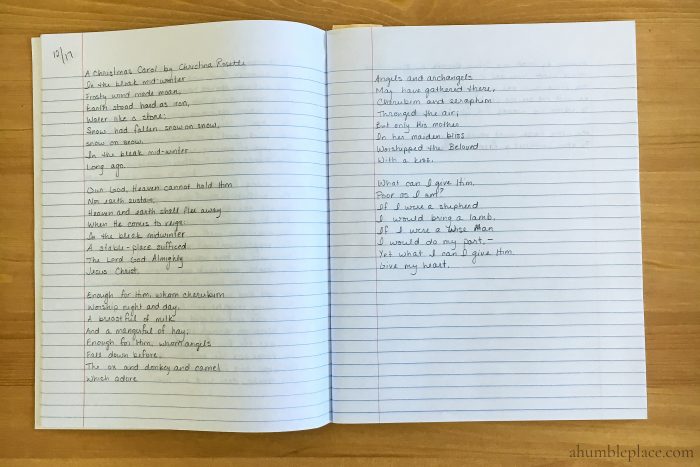 12/17
A Christmas Carol by Christina Rosetti
In the bleak mid-winter
Frosty wind made moan,
Earth stood hard as iron,
Water like a stone;
Snow had fallen, snow on snow,
snow on snow,
In the bleak mid-winter
Long ago.
Our God, Heaven cannot hold Him
Nor earth sustain;
Heaven and earth shall flee away
When He comes to reign:
In the bleak midwinter
A stable-place sufficed
The Lord God Almighty
Jesus Christ.
Enough for Him, whom cherubim
Worship night and day,
A breastful of milk
And a mangerful of hay;
Enough for Him, whom angels
Fall down before,
The ox and donkey and camel
Which adore.
Angels and archangels
May have gathered there,
Cherubim and seraphim
Thronged the air;
But only His mother
In her maiden bliss
Worshipped the Beloved
With a kiss.
What can I give Him,
Poor as I am?
If I were a shepherd
I would bring a lamb,
If I were a Wise Man
I would do my part,—
Yet what I can I give Him,
Give my heart.
ahumbleplace.com